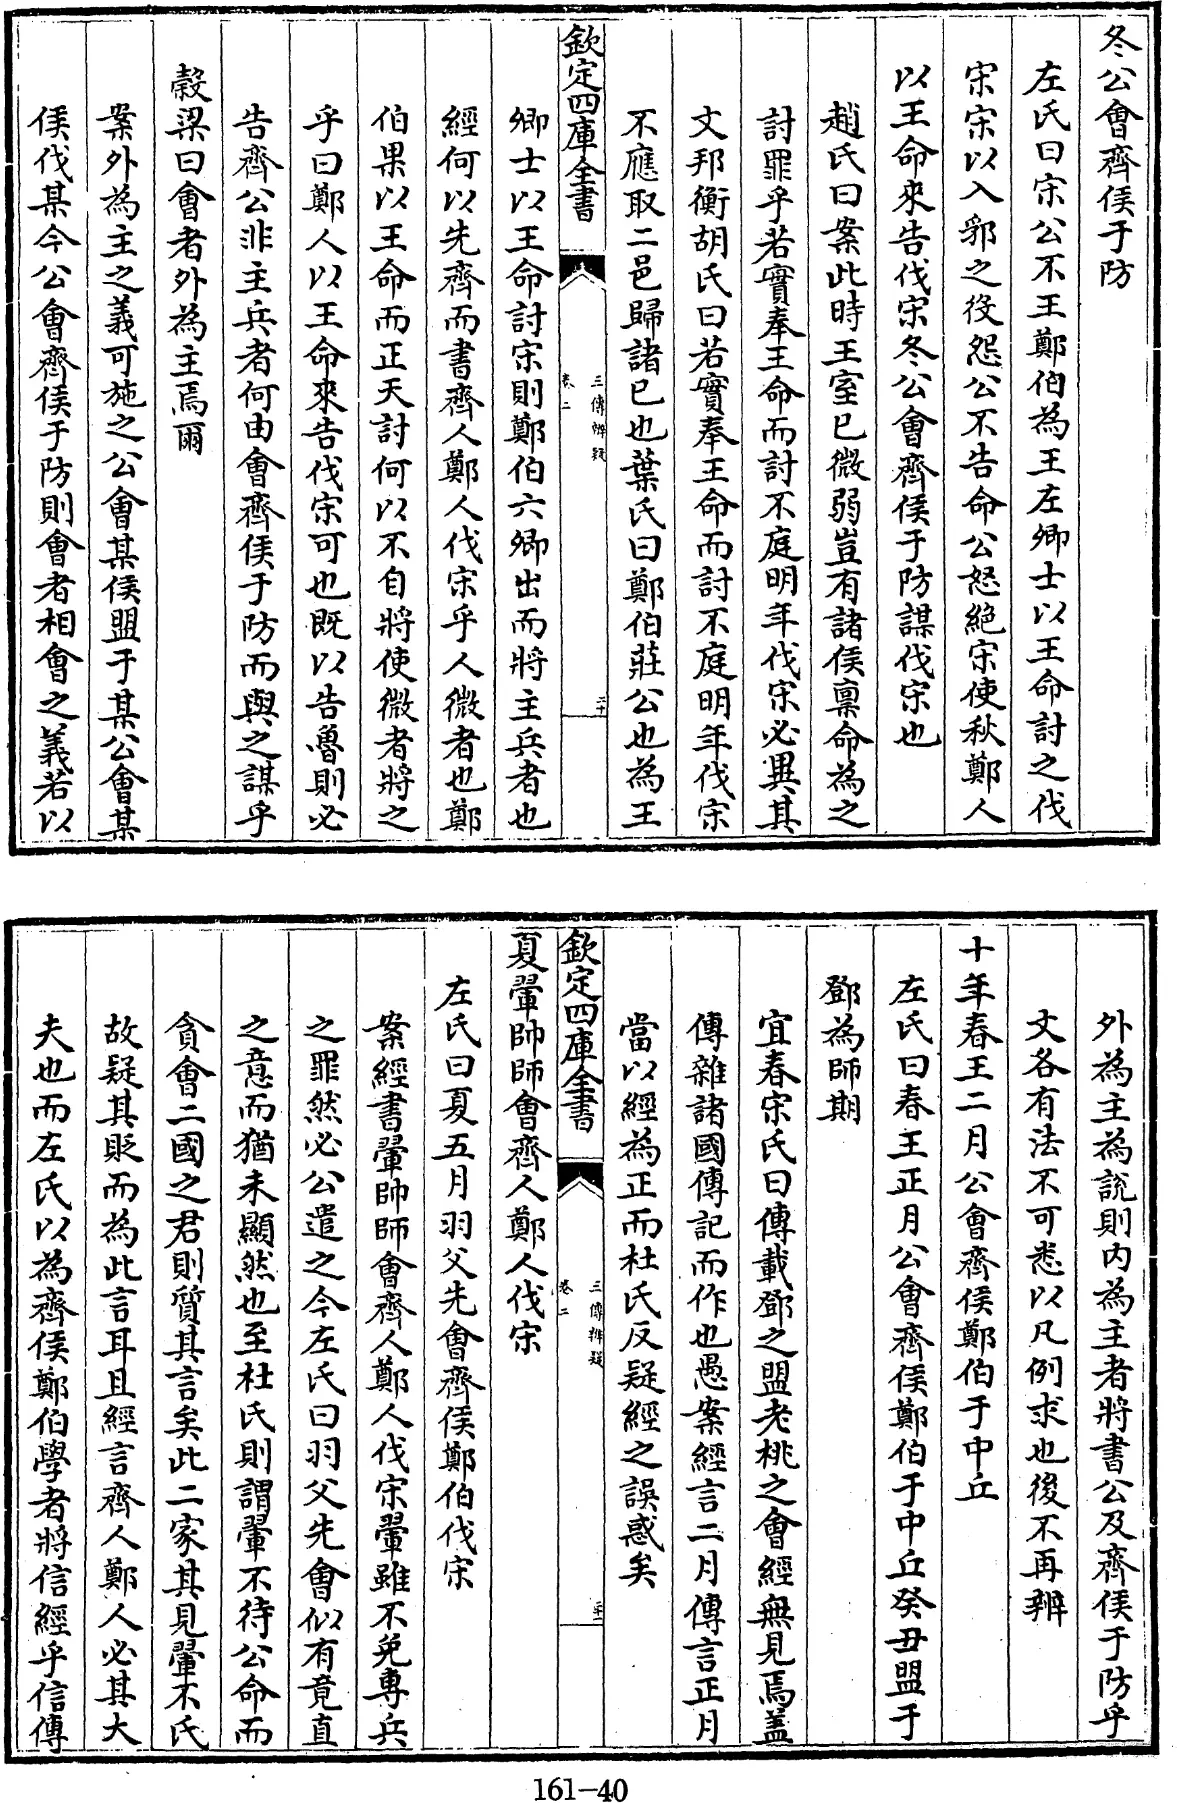 冬公會齊侯于防
左氏曰宋公不王鄭伯為王左卿士以王命討之伐
宋宋以入郛之役怨公不告命公怒絶宋使秋鄭人
以王命來告伐宋冬公會齊侯于防謀伐宋也
趙氏曰案此時王室已微弱豈有諸侯稟命為之
討罪乎若實奉王命而討不庭明年伐宋必異其
文邦衡胡氏曰若實奉王命而討不庭明年伐宋
不應取二邑歸諸已也葉氏曰鄭伯莊公也為王
欽定四庫全書
三傳辨疑
卷二
二十
卿士以王命討宋則鄭伯六卿出而將主兵者也
經何以先齊而書齊人鄭人伐宋乎人微者也鄭
伯果以王命而正天討何以不自將使微者將之
乎曰鄭人以王命來告伐宋可也既以告魯則必
告齊公非主兵者何由會齊侯于防而與之謀乎
穀梁曰會者外為主焉爾
案外為主之義可施之公會某侯盟于某公會某
侯伐某今公會齊侯于防則會者相會之義若以
外為主為說則内為主者將書公及齊侯于防乎
文各有法不可悉以凡例求也後不再辨
十年春王二月公會齊侯鄭伯于中丘
左氏曰春王正月公會齊侯鄭伯于中丘癸丑盟于
鄧為師期
宜春宋氏曰傳載鄧之盟老桃之會經無見焉蓋
傳雜諸國傳記而作也愚案經言二月傳言正月
當以經為正而杜氏反疑經之誤惑矣
欽定四庫全書
三傳辨疑
卷二
二十一
夏翬帥師會齊人鄭人伐宋
左氏曰夏五月羽父先會齊侯鄭伯伐宋
案經書翬帥師會齊人鄭人伐宋翬雖不免專兵
之罪然必公遣之今左氏曰羽父先會似有竟直
之意而猶未顯然也至杜氏則謂翬不待公命而
貪會二國之君則質其言矣此二家其見翬不氏
故疑其貶而為此言耳且經言齊人鄭人必其大
夫也而左氏以為齊侯鄭伯學者將信經乎信傳
161-40